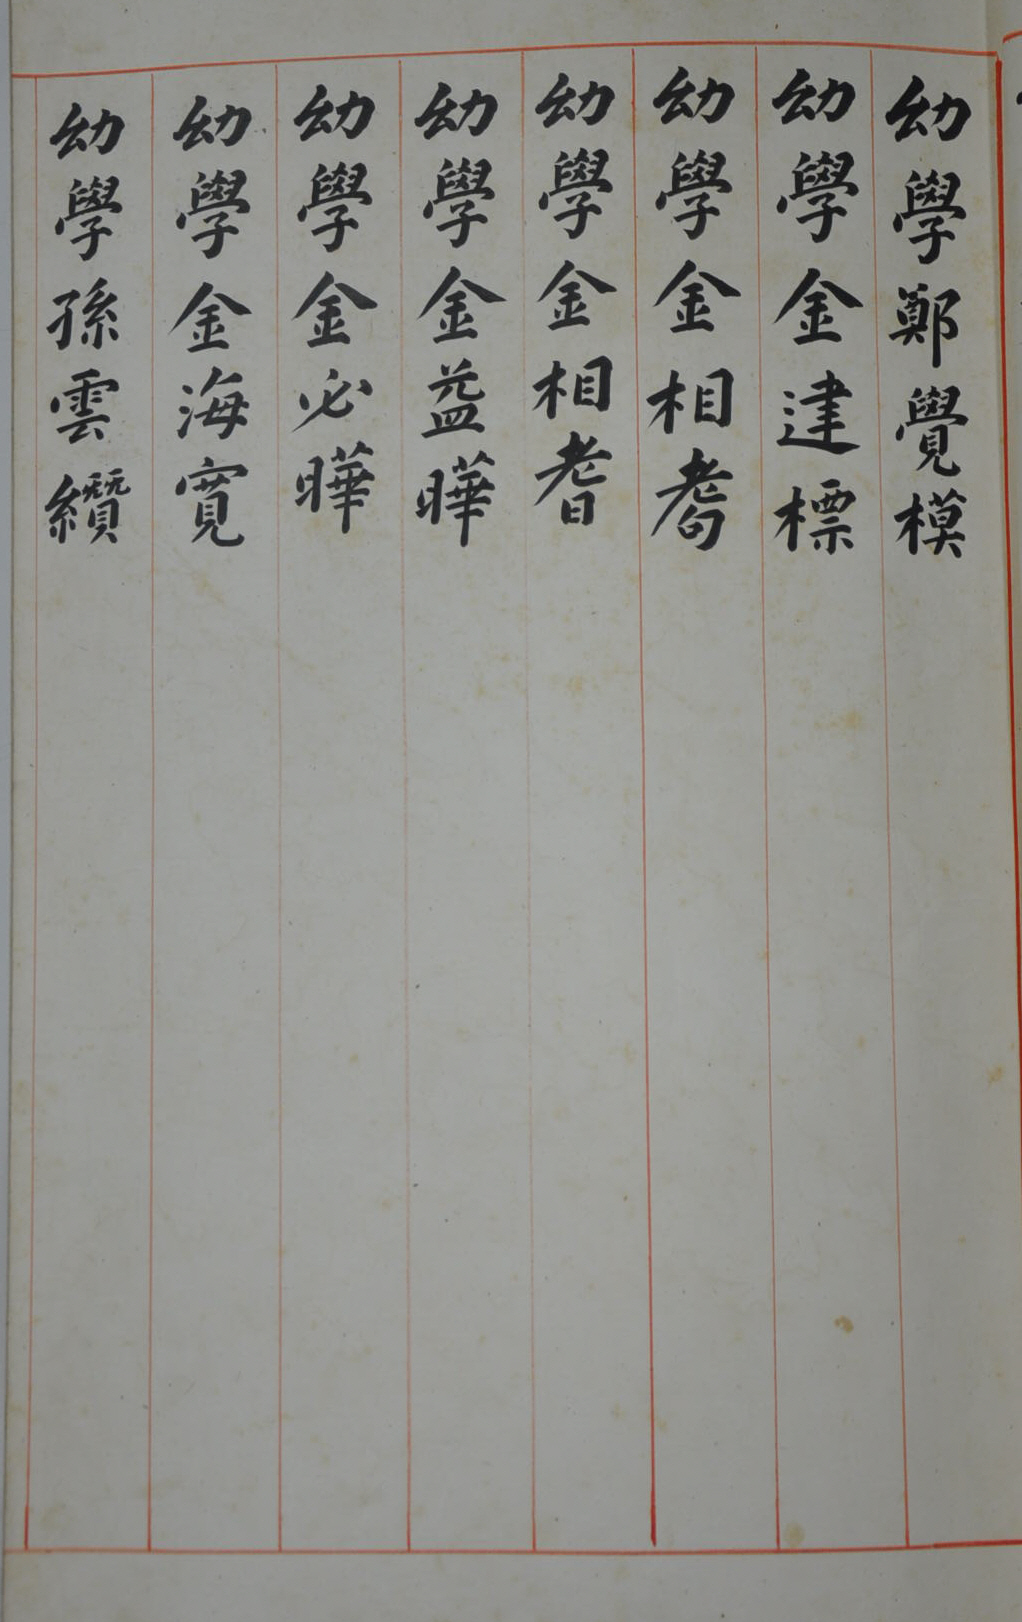 幼學鄭覺模
幼學金建標
幼學金相耉
幼學金相耆
幼學金益曄
幼學金必曄
幼學金海寬
幼學孫雲纘